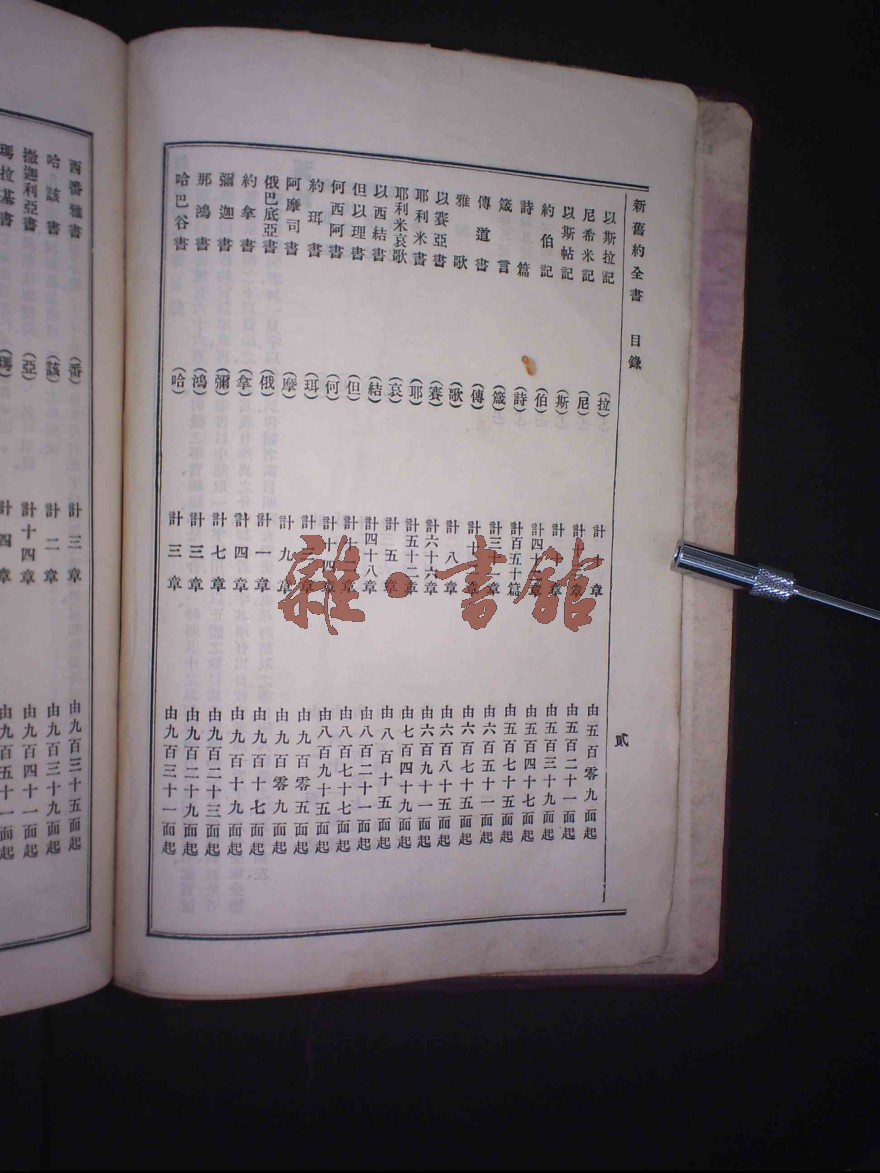 新舊約全書 目錄
以斯拉記 (拉) 計十章 由五百零九面起
尼希米記 (尼) 計十三章 由五百二十一面起
以斯帖記 (斯) 計十章 由五百三十九面起
約伯記 (伯) 計四十二章 由五百四十七面起
詩篇 (詩) 計百五十篇 由五百七十五面起
箴言 (箴) 計三十一章 由六百五十一面起
傳道書 (傳) 計十二章 由六百七十五面起
雅歌 (歌) 計八章 由六百八十五面起
以賽亞書 (賽) 計六十六章 由六百九十一面起
耶利米書 (耶) 計五十二章 由七百四十九面起
耶利米哀歌 (哀) 計五章 由八百十五面起
以西結書 (結) 計四十八章 由八百二十一面起
但以理書 (但) 計十二章 由八百七十七面起
何西阿書 (何) 計十四章 由八百九十五面起
約珥書 (珥) 計三章 由九百零五面起
阿摩司書 (摩) 計九章 由九百零九面起
俄巴底亞書 (俄) 計一章 由九百十七面起
約拿書 (拿) 計四章 由九百十九面起
彌迦書 (彌) 計七章 由九百二十三面起
那鴻書 (鴻) 計三章 由九百二十九面起
哈巴谷書 (哈) 計三章 由九百三十一面起
西番雅書 (番) 計三章 由九百三十五面起
哈該書 (該) 計二章 由九百三十九面起
撒迦利亞書 (亞) 計十四章 由九百四十一面起
瑪拉基書 (瑪) 計四章 由九百五十一面起
雜·書館